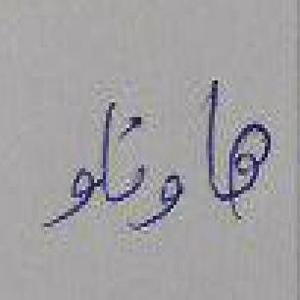 هاونلو